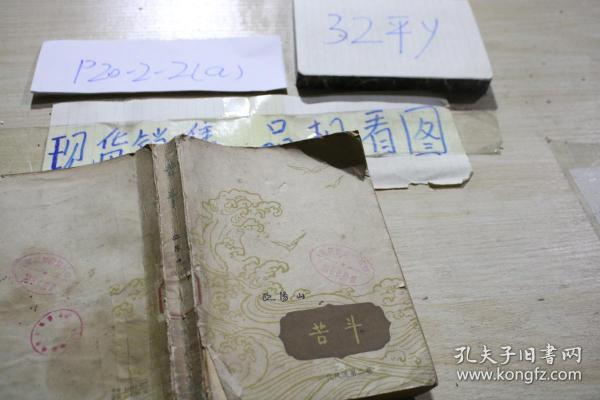 P20-2-2(a)
32平y
现货销售 品相看图
苦斗
欧阳山
苦斗
孔夫子旧书网
www.kongfz.com